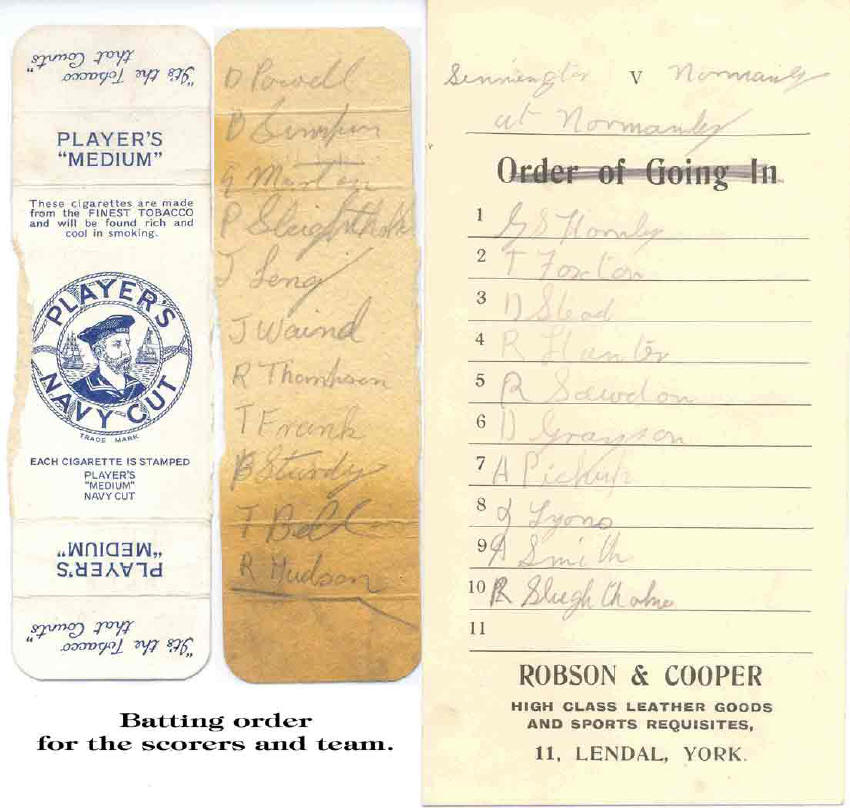 "It's the Tobacco
that Counts"
PLAYER'S
"MEDIUM"
These cigarettes are made
from the FINEST TOBACCO
and will be found rich and
cool in smoking.
PLAYER'S
NAVY CUT
TRADE MARK
EACH CIGARETTE IS STAMPED
PLAYER'S
"MEDIUM"
NAVY CUT
PLAYER'S
"MEDIUM"
"It's the Tobacco
that Counts"
D Powell
B Simpson
G Martin
P Sleightholm
J Leng
J Waind
R Thompson
T Frank
B Sturdy
T Bell
R Hudson
Batting order
for the scorers and team.
Sinnington V Normanby
at Normanby
Order of Going In
1 G S
2 T Foxton
3 D Stead
4 R Hunter
5 R Sawdon
6 D Grayson
7 A Pickup
8 Lyons
9 A Smith
10 R Sleightholme
11
ROBSON & COOPER
HIGH CLASS LEATHER GOODS
AND SPORTS REQUISITES,
11, LENDAL, YORK.